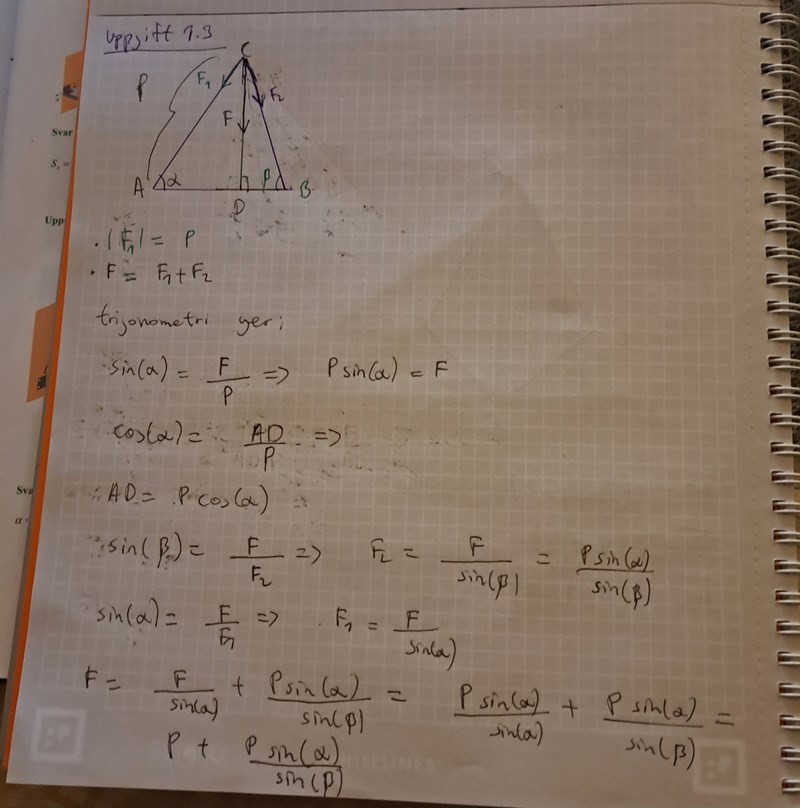 Uppgift 1.3
C
P
F₁
F₂
F
A
α
β
B
D
Svar
Upp
Sva
· |F₁| = P
· F = F₁ + F₂
trigonometri ger;
sin(α) = F/P => P sin(α) = F
cos(α) = AD/P =>
AD = P cos(α)
sin(β) = F/F₂ => F₂ = F/sin(β) = P sin(α)/sin(β)
sin(α) = F/F₁ => F₁ = F/sin(α)
F = F/sin(α) + P sin(α)/sin(β) = P sin(α)/sin(α) + P sin(α)/sin(β) =
P + P sin(α)/sin(β)